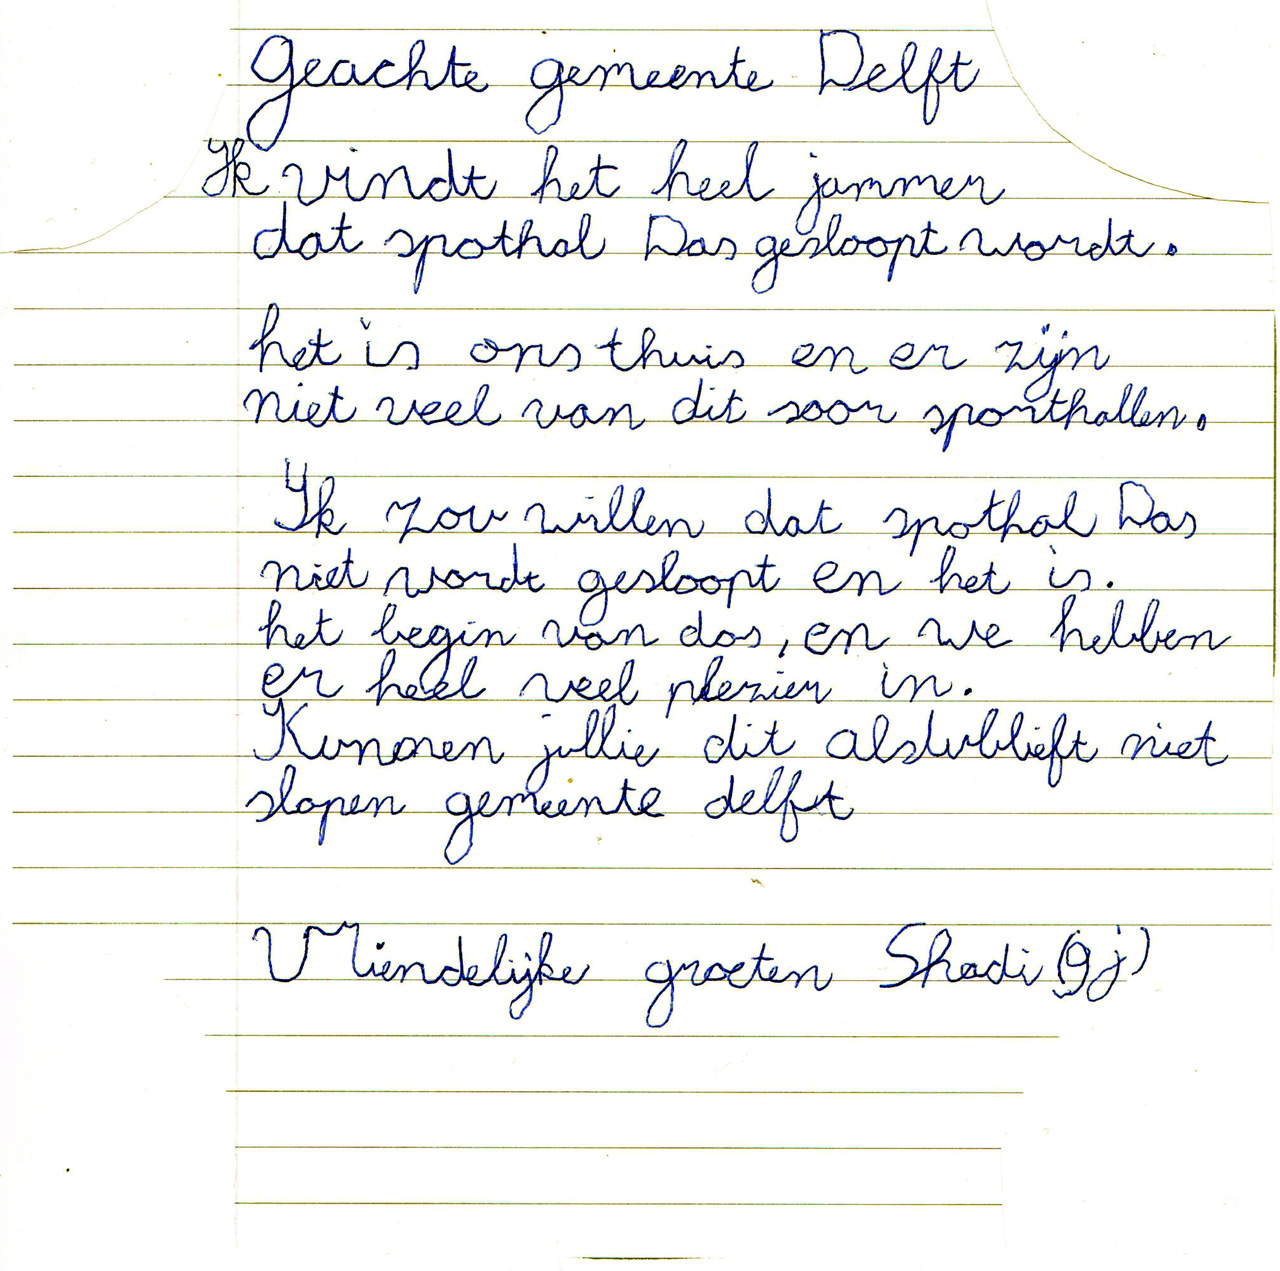 Geachte gemeente Delft
Ik vindt het heel jammer
dat spothal Das gesloopt wordt.
het is ons thuis en er zijn
niet veel van dit soor sporthallen.
Ik zou willen dat spothal Das
niet wordt gesloopt en het is.
het begin van das, en we hebben
er heel veel plezier in.
Kunnen jullie dit alstublieft niet
slopen gemeente delft
Vriendelijke groeten Shadi (9j)